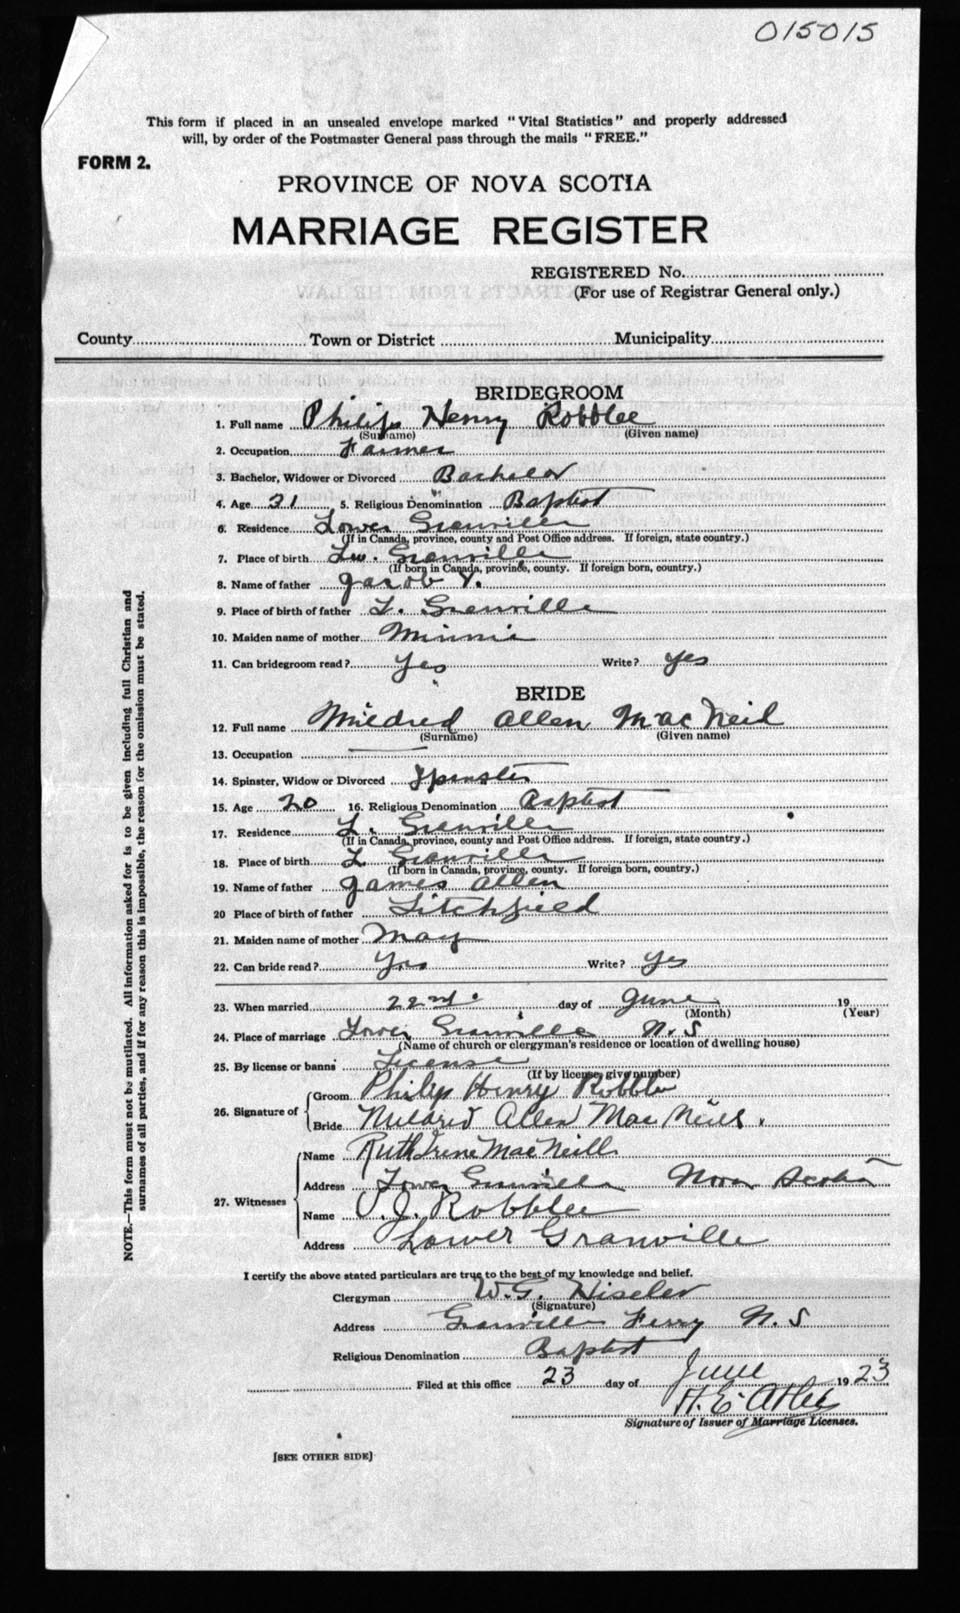 015015
This form if placed in an unsealed envelope marked "Vital Statistics" and properly addressed
will, by order of the Postmaster General pass through the mails "FREE."
FORM 2.
PROVINCE OF NOVA SCOTIA
MARRIAGE REGISTER
REGISTERED No.
(For use of Registrar General only.)
County Town or District Municipality
BRIDEGROOM
1. Full name Philip Henry Robblee
(Surname) (Given name)
2. Occupation Farmer
3. Bachelor, Widower or Divorced Bachelor
4. Age 21 5. Religious Denomination Baptist
6. Residence Lower Granville
(If in Canada, province, county and Post Office address. If foreign, state country.)
7. Place of birth Lw. Granville
(If born in Canada, province, county. If foreign born, country.)
8. Name of father Jacob V.
9. Place of birth of father L. Granville
10. Maiden name of mother Minnie
11. Can bridegroom read? Yes Write? Yes
BRIDE
12. Full name Mildred Allen MacNeil
(Surname) (Given name)
13. Occupation
14. Spinster, Widow or Divorced Spinster
15. Age 20 16. Religious Denomination Baptist
17. Residence L. Granville
(If in Canada, province, county and Post Office address. If foreign, state country.)
18. Place of birth L Granville
(If born in Canada, province, county. If foreign born, country.)
19. Name of father James Allen
20 Place of birth of father Litchfield
21. Maiden name of mother May
22. Can bride read? Yes Write? Yes
23. When married 22nd day of June 19
(Month) (Year)
24. Place of marriage Lower Granville N.S
(Name of church or clergyman's residence or location of dwelling house)
25. By license or banns License
(If by license, give number)
26. Signature of Groom Philip Henry Robblee
Bride Mildred Allen MacNeill.
27. Witnesses Name Ruth Irene MacNeill
Address Lower Granville Nova Scotia
Name V. J. Robblee
Address Lower Granville
I certify the above stated particulars are true to the best of my knowledge and belief.
Clergyman W. G. Hiseler
(Signature)
Address Granville Ferry N. S
Religious Denomination Baptist
Filed at this office 23 day of June 1923
H. E. Atlee
Signature of Issuer of Marriage Licenses.
[SEE OTHER SIDE]
NOTE.—This form must not be mutilated. All information asked for is to be given including full Christian and
surnames of all parties, and if for any reason this is impossible, the reason for the omission must be stated.